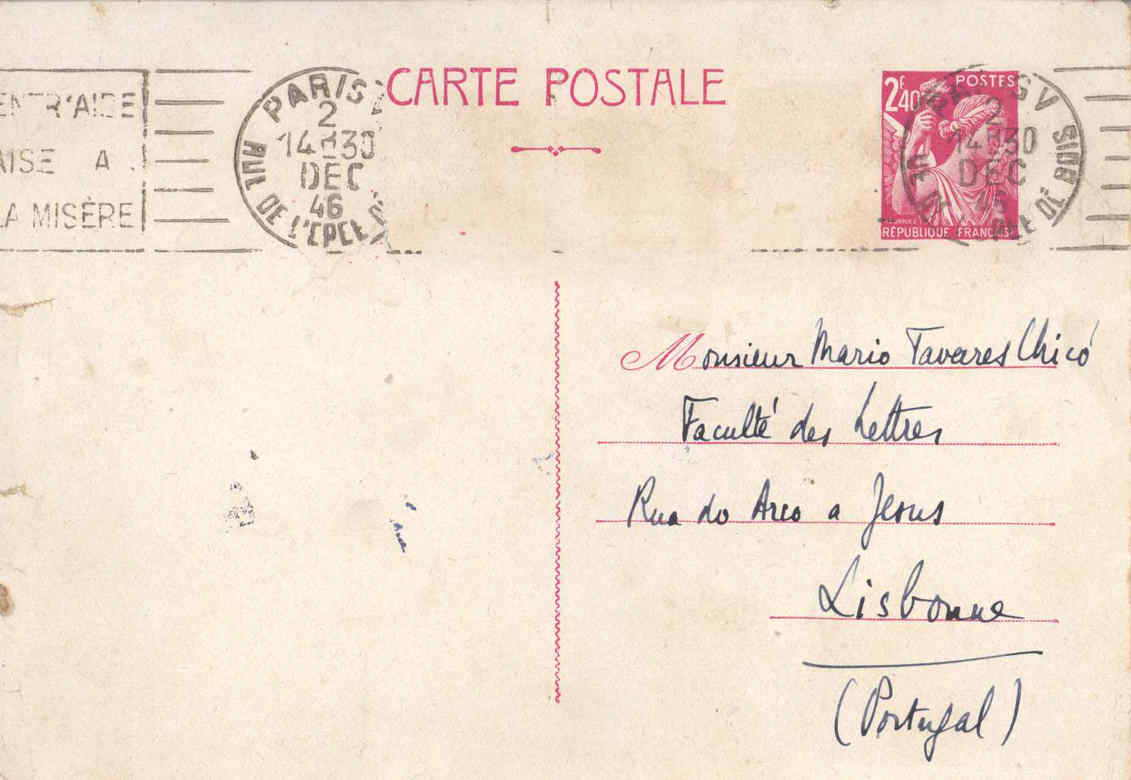 CARTE POSTALE
ENTR'AIDE
AISE A
LA MISÈRE
PARIS
2
14H30
DEC
46
RUE DE L'EPEE DE
2F40
POSTES
RÉPUBLIQUE FRANÇAISE
PARIS V
2
14H30
DEC
46
Monsieur Mario Tavares Chicó
Faculté des Lettres
Rua do Arco a Jesus
Lisbonne
(Portugal)